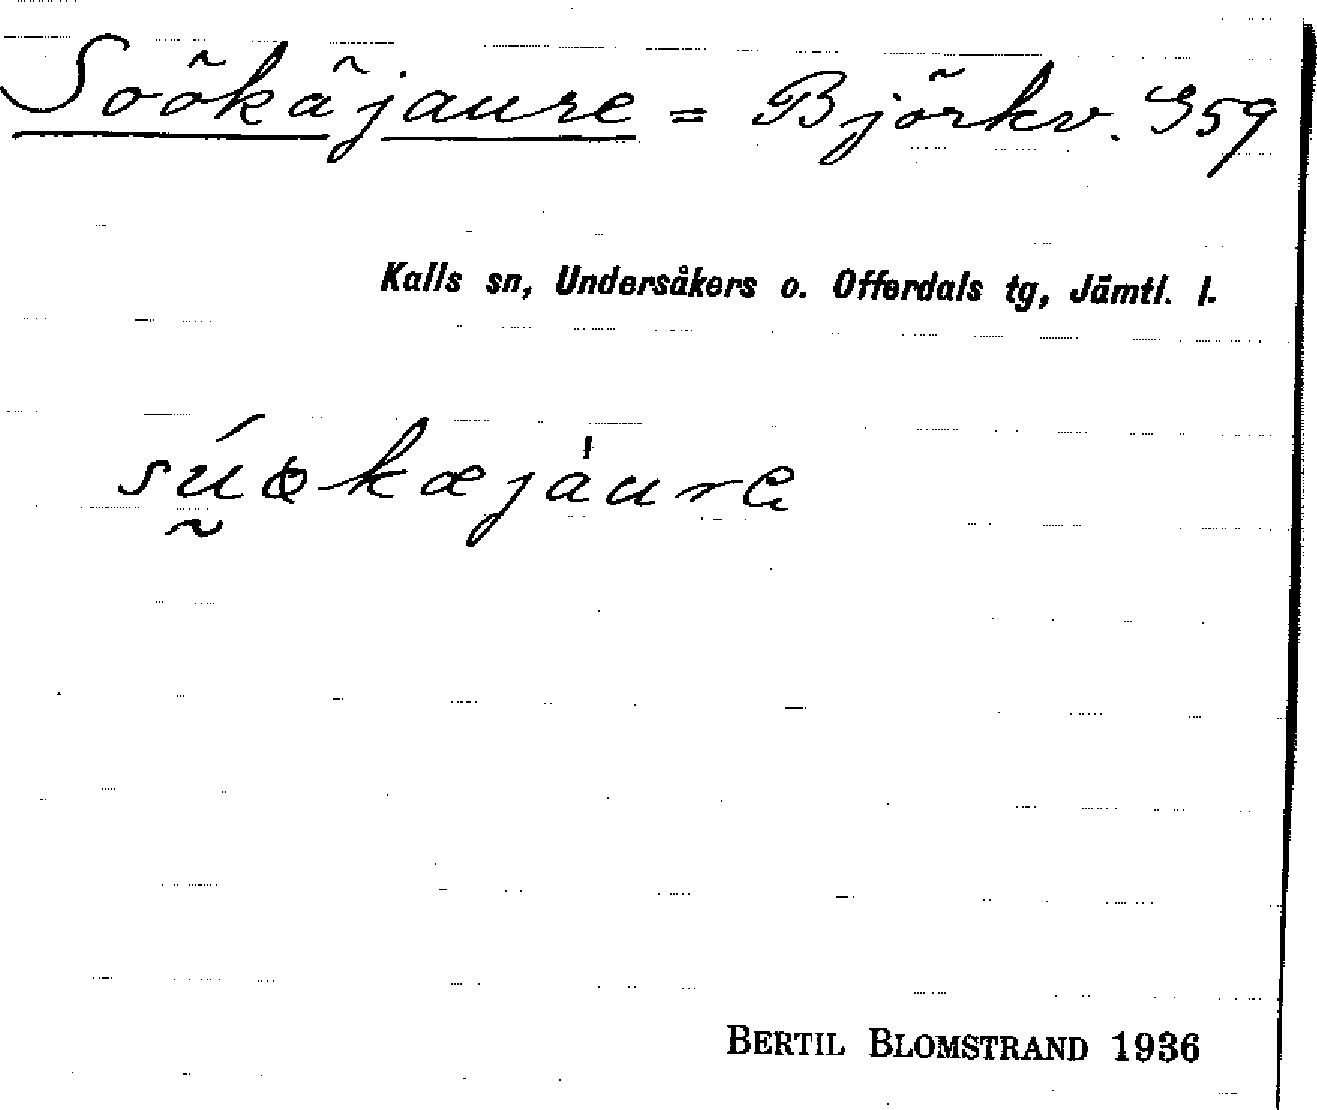 Soökäjaure = Björkv. G59
Kalls sn, Undersåkers o. Offerdals tg, Jämtl. l.
BERTIL BLOMSTRAND 1936